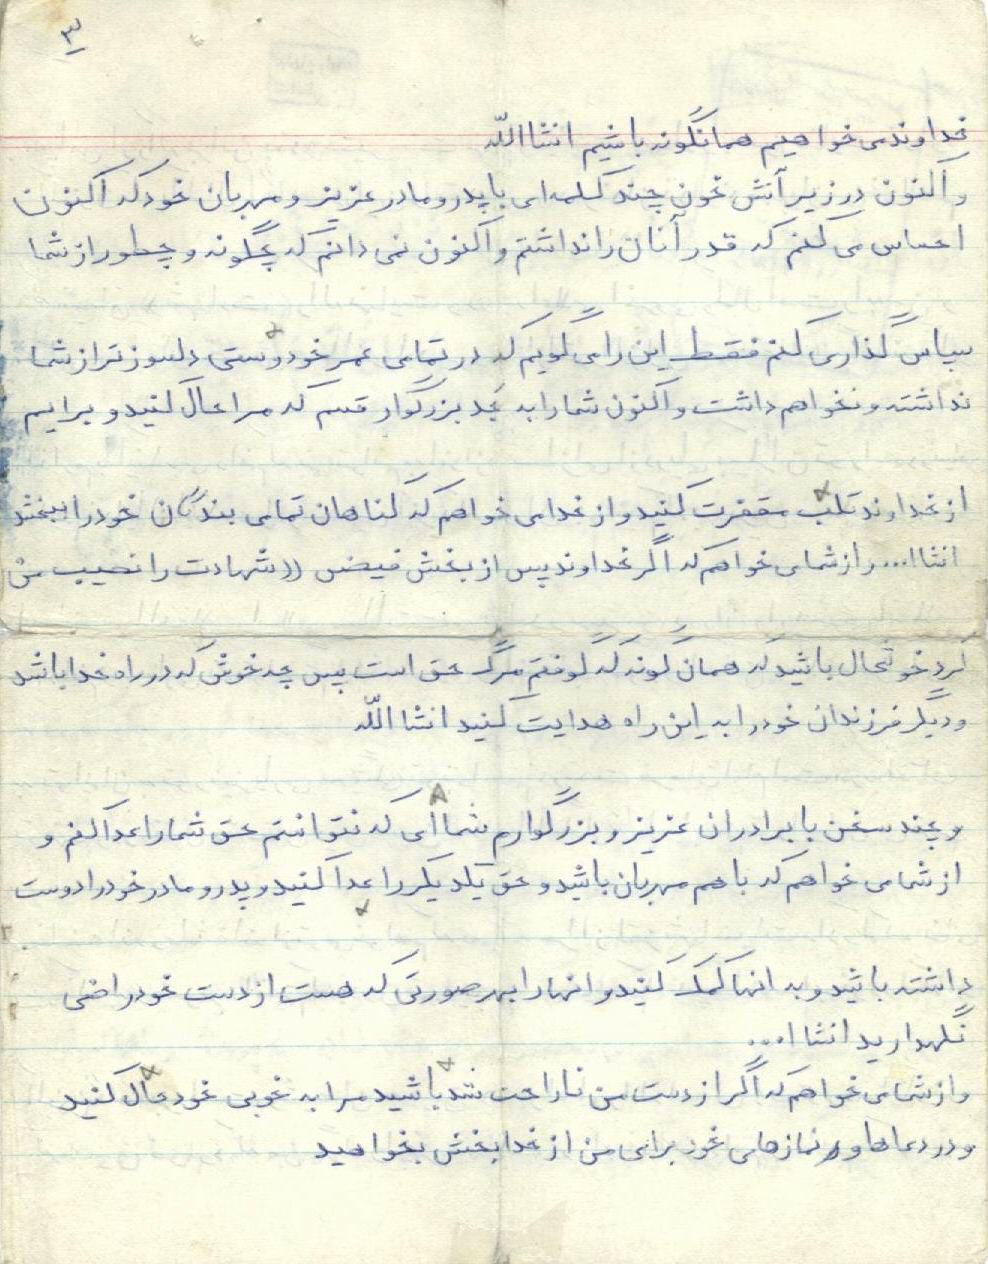 ۳
خداوند می خواهیم همانگونه باشیم انشاالله
و اکنون در زیر آتش خون چند کلمه ای با پدر و مادر عزیز و مهربان خود که اکنون
احساس می کنم که قدر آنان را نداشتم و اکنون نمی دانم که چگونه و چطور از شما
سپاس گذاری کنم فقط این را می گویم که در تمامی عمر خود دوستی دلسوزتر از شما
نداشته و نخواهم داشت و اکنون شما را به جد بزرگوار قسم که مرا حلال کنید و برایم
از خداوند تلب مقفرت کنید و از خدا می خواهم که گناهان تمامی بندگان خود را ببخشد
انشاا... و از شما می خواهم که اگر خداوند پس از بخشش فیض ((شهادت را نصیب من
کرد خوشحال باشید که همان گونه که گفتم مرگ حق است پس چه خوش که در راه خدا باشد
و دیگر فرزندان خود را به این راه هدایت کنید انشاالله
و چند سخن با برادران عزیز و بزرگوارم شما ای که نتوانتم حق شما را عدا کنم و
از شما می خواهم که با هم مهربان باشید و حق یکدیگر را عدا کنید و پدر و مادر خود را دوست
داشته باشید و به انها کمک کنید و انها را بهر صورتی که هست از دست خود راضی
نگهدارید انشاا...
و از شما می خواهم که اگر از دست من ناراحت شده باشید مرا به خوبی خود حلال کنید
و در دعاها و نمازهای خود برای من از خدا بخشش بخواهید